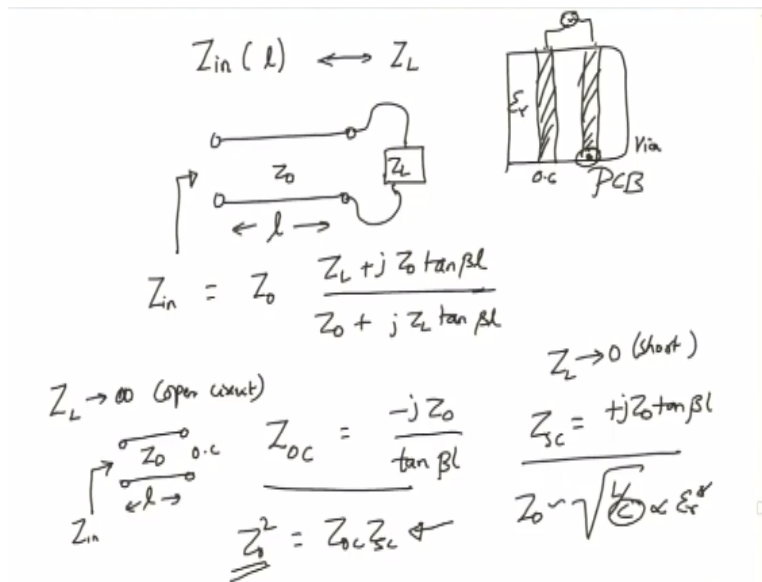 Z_in(l) ⟷ Z_L
ε_r
Via
o.c
PCB
Z_0
Z_L
← l →
Z_in = Z_0 (Z_L + j Z_0 tan βl) / (Z_0 + j Z_L tan βl)
Z_L → ∞ (open circuit)
Z_L → 0 (short)
Z_0 o.c
← l →
Z_in
Z_OC = -j Z_0 / tan βl
Z_SC = +j Z_0 tan βl
Z_0^2 = Z_OC Z_SC ←
Z_0 ~ √(L/C) ∝ ε_r